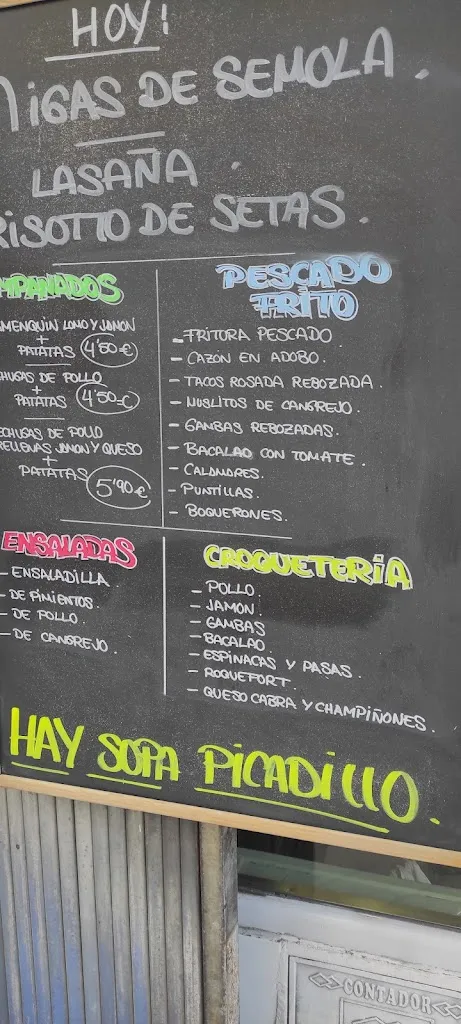 HOY:
MIGAS DE SEMOLA.
LASAÑA.
RISOTTO DE SETAS.
MPANADOS
MENQUIN LOMO Y JAMON
+
PATATAS 4'50€
CHUGAS DE POLLO
+
PATATAS 4'50€
ECHUGAS DE POLLO
RELLENAS JAMON Y QUESO
+
PATATAS
5'90€
PESCADO
FRITO
- FRITURA PESCADO.
- CAZÓN EN ADOBO.
- TACOS ROSADA REBOZADA.
- MUSLITOS DE CANGREJO.
- GAMBAS REBOZADAS.
- BACALAO CON TOMATE.
- CALAMARES.
- PUNTILLAS.
- BOQUERONES.
ENSALADAS
- ENSALADILLA.
- DE PIMIENTOS.
- DE POLLO.
- DE CANGREJO.
CROQUETERÍA
- POLLO.
- JAMON.
- GAMBAS
- BACALAO.
- ESPINACAS Y PASAS.
- ROQUEFORT.
- QUESO CABRA Y CHAMPIÑONES.
HAY SOPA PICADILLO.
CONTADOR